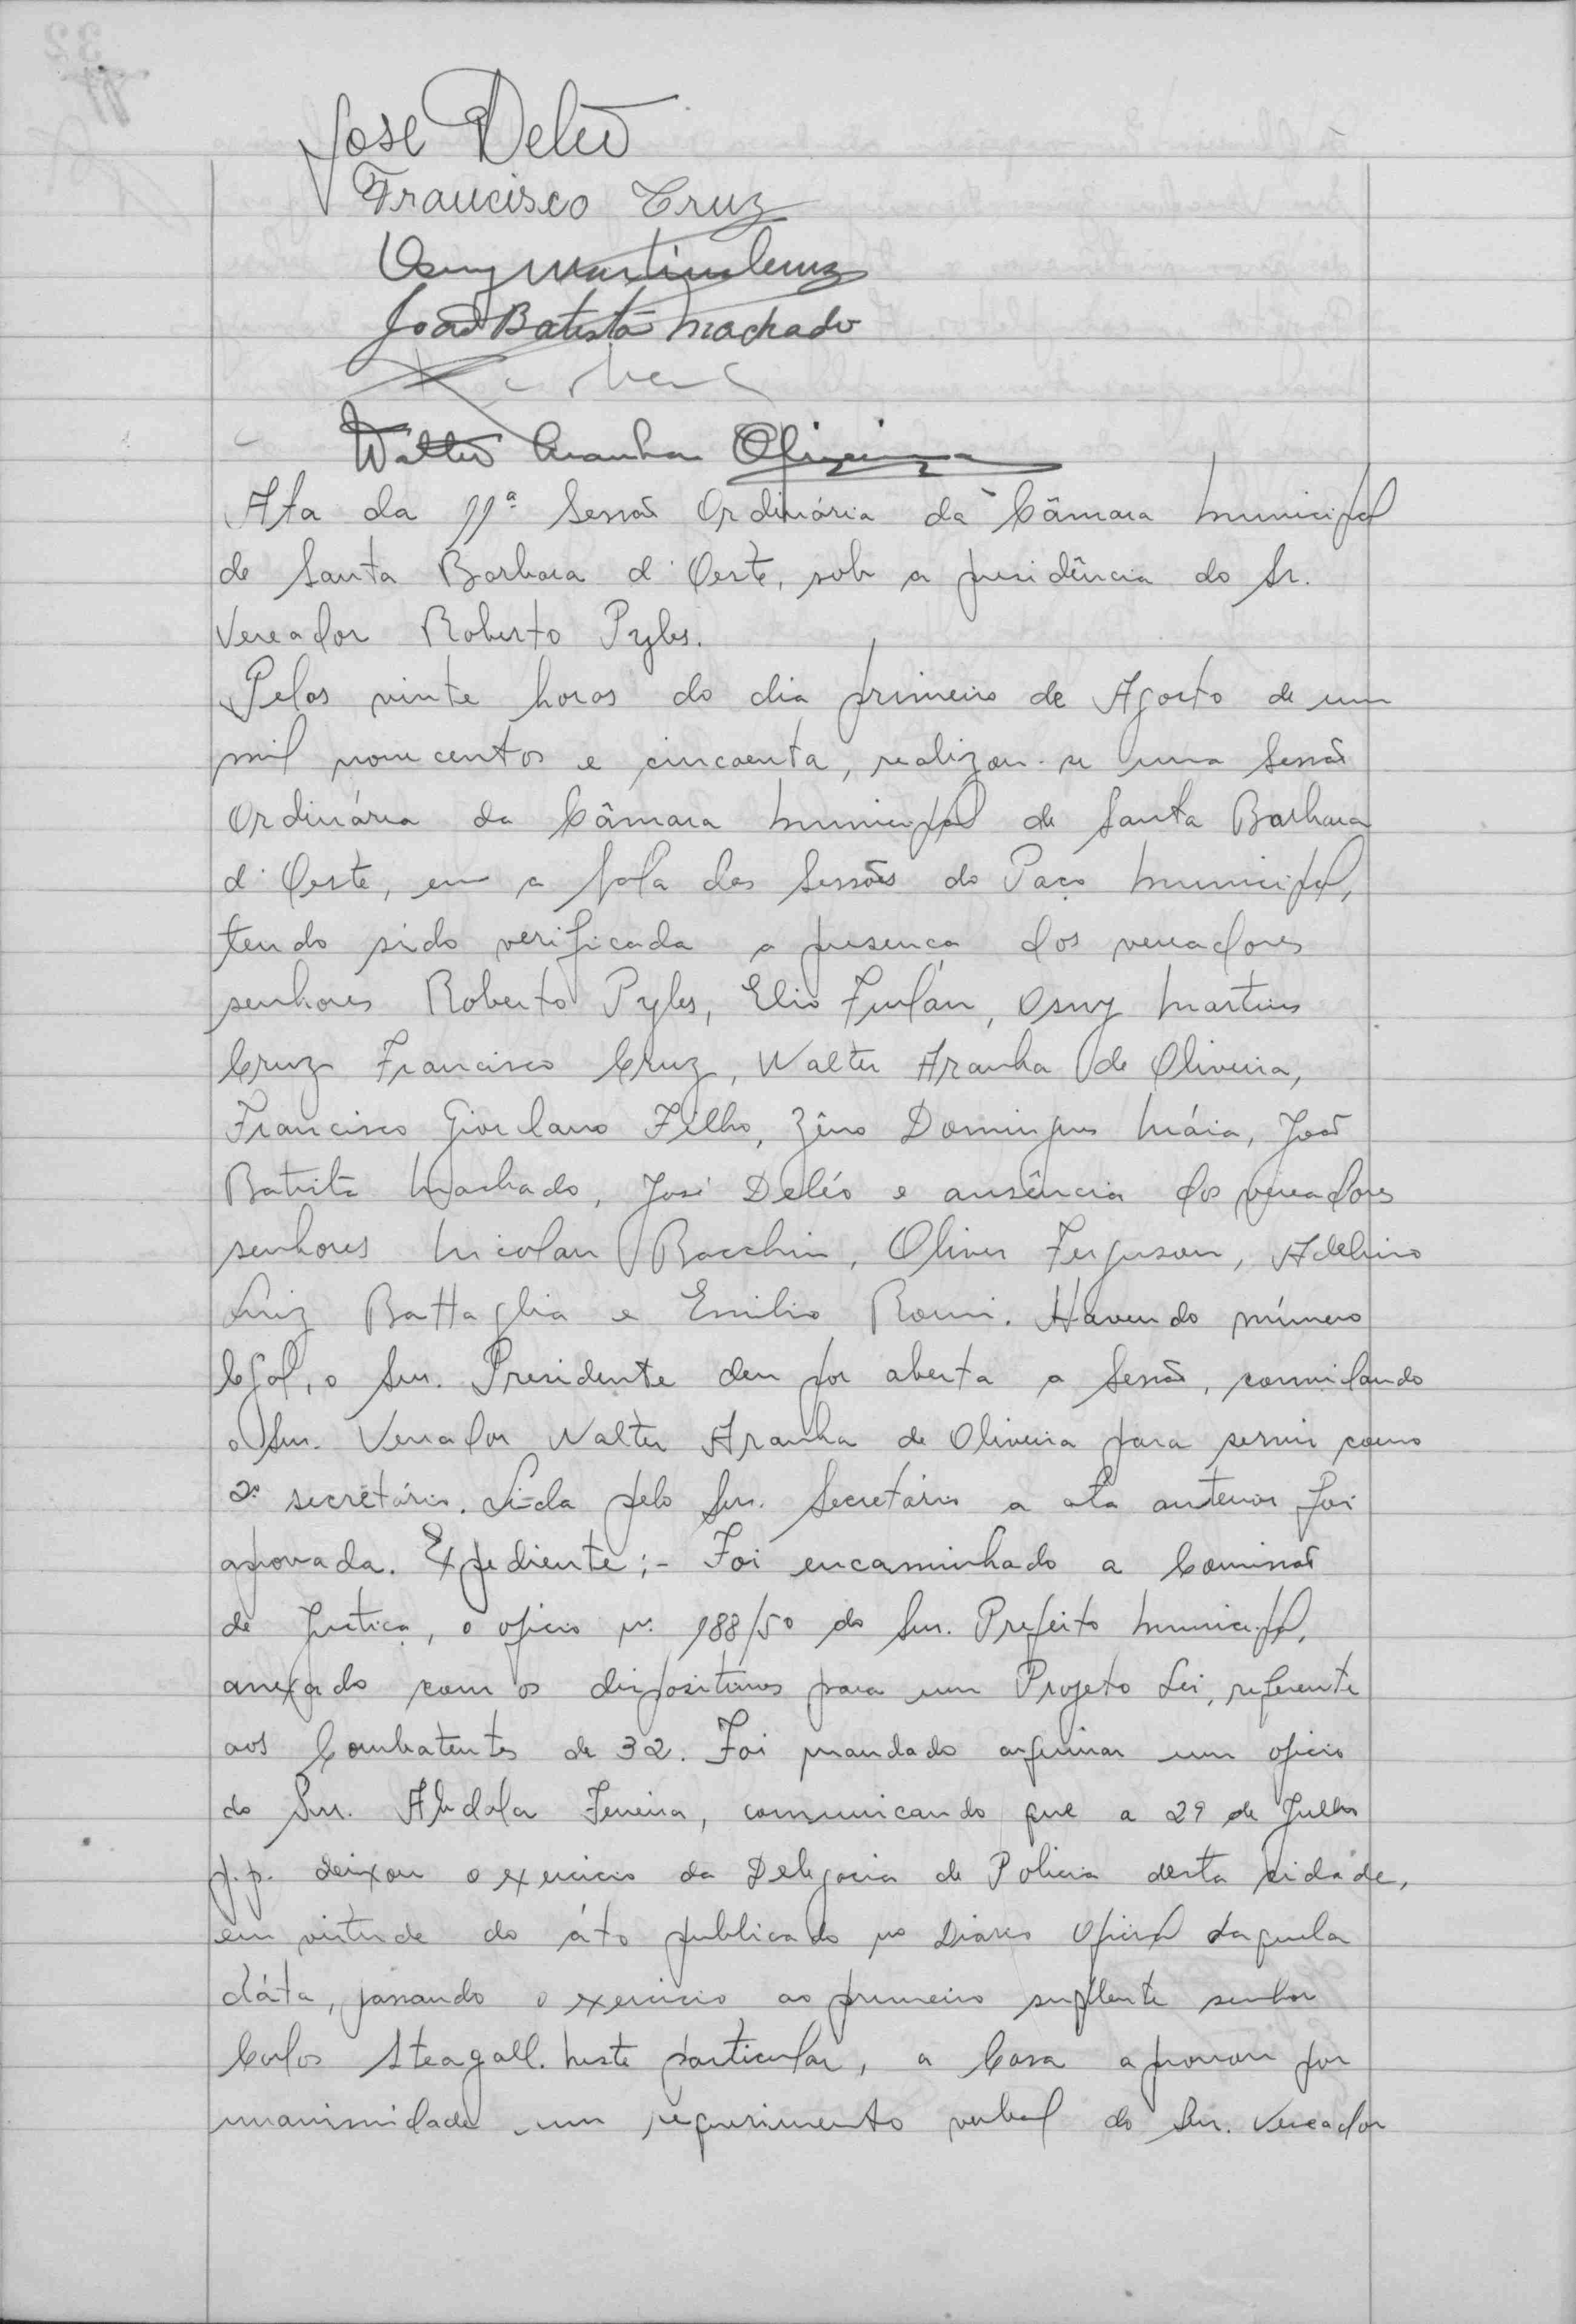 José Deléo
Francisco Cruz
Osny Martins Cruz
João Batista Machado
Walter Aranha Oliveira
Ata da 11ª Sessão Ordinária da Câmara Municipal
de Santa Barbara d'Oeste, sob a presidência do Sr.
Vereador Roberto Pyles.
Pelas vinte horas do dia primeiro de Agosto de um
mil novecentos e cincoenta, realizou-se uma Sessão
Ordinária da Câmara Municipal de Santa Barbara
d'Oeste, em a Sala das Sessões do Paço Municipal,
tendo sido verificada a presença dos vereadores
senhores Roberto Pyles, Elio Furlan, Osny Martins
Cruz Francisco Cruz, Walter Aranha de Oliveira,
Francisco Giordano Filho, Zêno Domingues Máia, João
Batista Machado, José Deléo e ausência dos vereadores
senhores Nicolau Bacchin, Oliver Ferguson, Adelino
Luiz Battaglia e Emilio Romi. Havendo número
legal, o Snr. Presidente deu por aberta a Sessão, convidando
o Snr. Vereador Walter Aranha de Oliveira para servir como
2º secretário. Lida pelo Snr. Secretário a ata anterior foi
aprovada. Expediente:- Foi encaminhado a Comissão
de Justiça, o oficio nº 188/50 do Snr. Prefeito Municipal,
anexado com os dispositivos para um Projeto Lei, referente
aos Combatentes de 32. Foi mandado arquivar um oficio
do Snr. Abdala Ferreira, comunicando que a 29 de Julho
p.p. deixou o exercicio da Delegacia de Policia desta cidade,
em virtude do áto publicado no Diario Oficial daquela
dáta, passando o exercicio ao primeiro suplente senhor
Carlos Steagall. Neste particular, a Casa aprovou por
unanimidade um requerimento verbal do Snr. Vereador